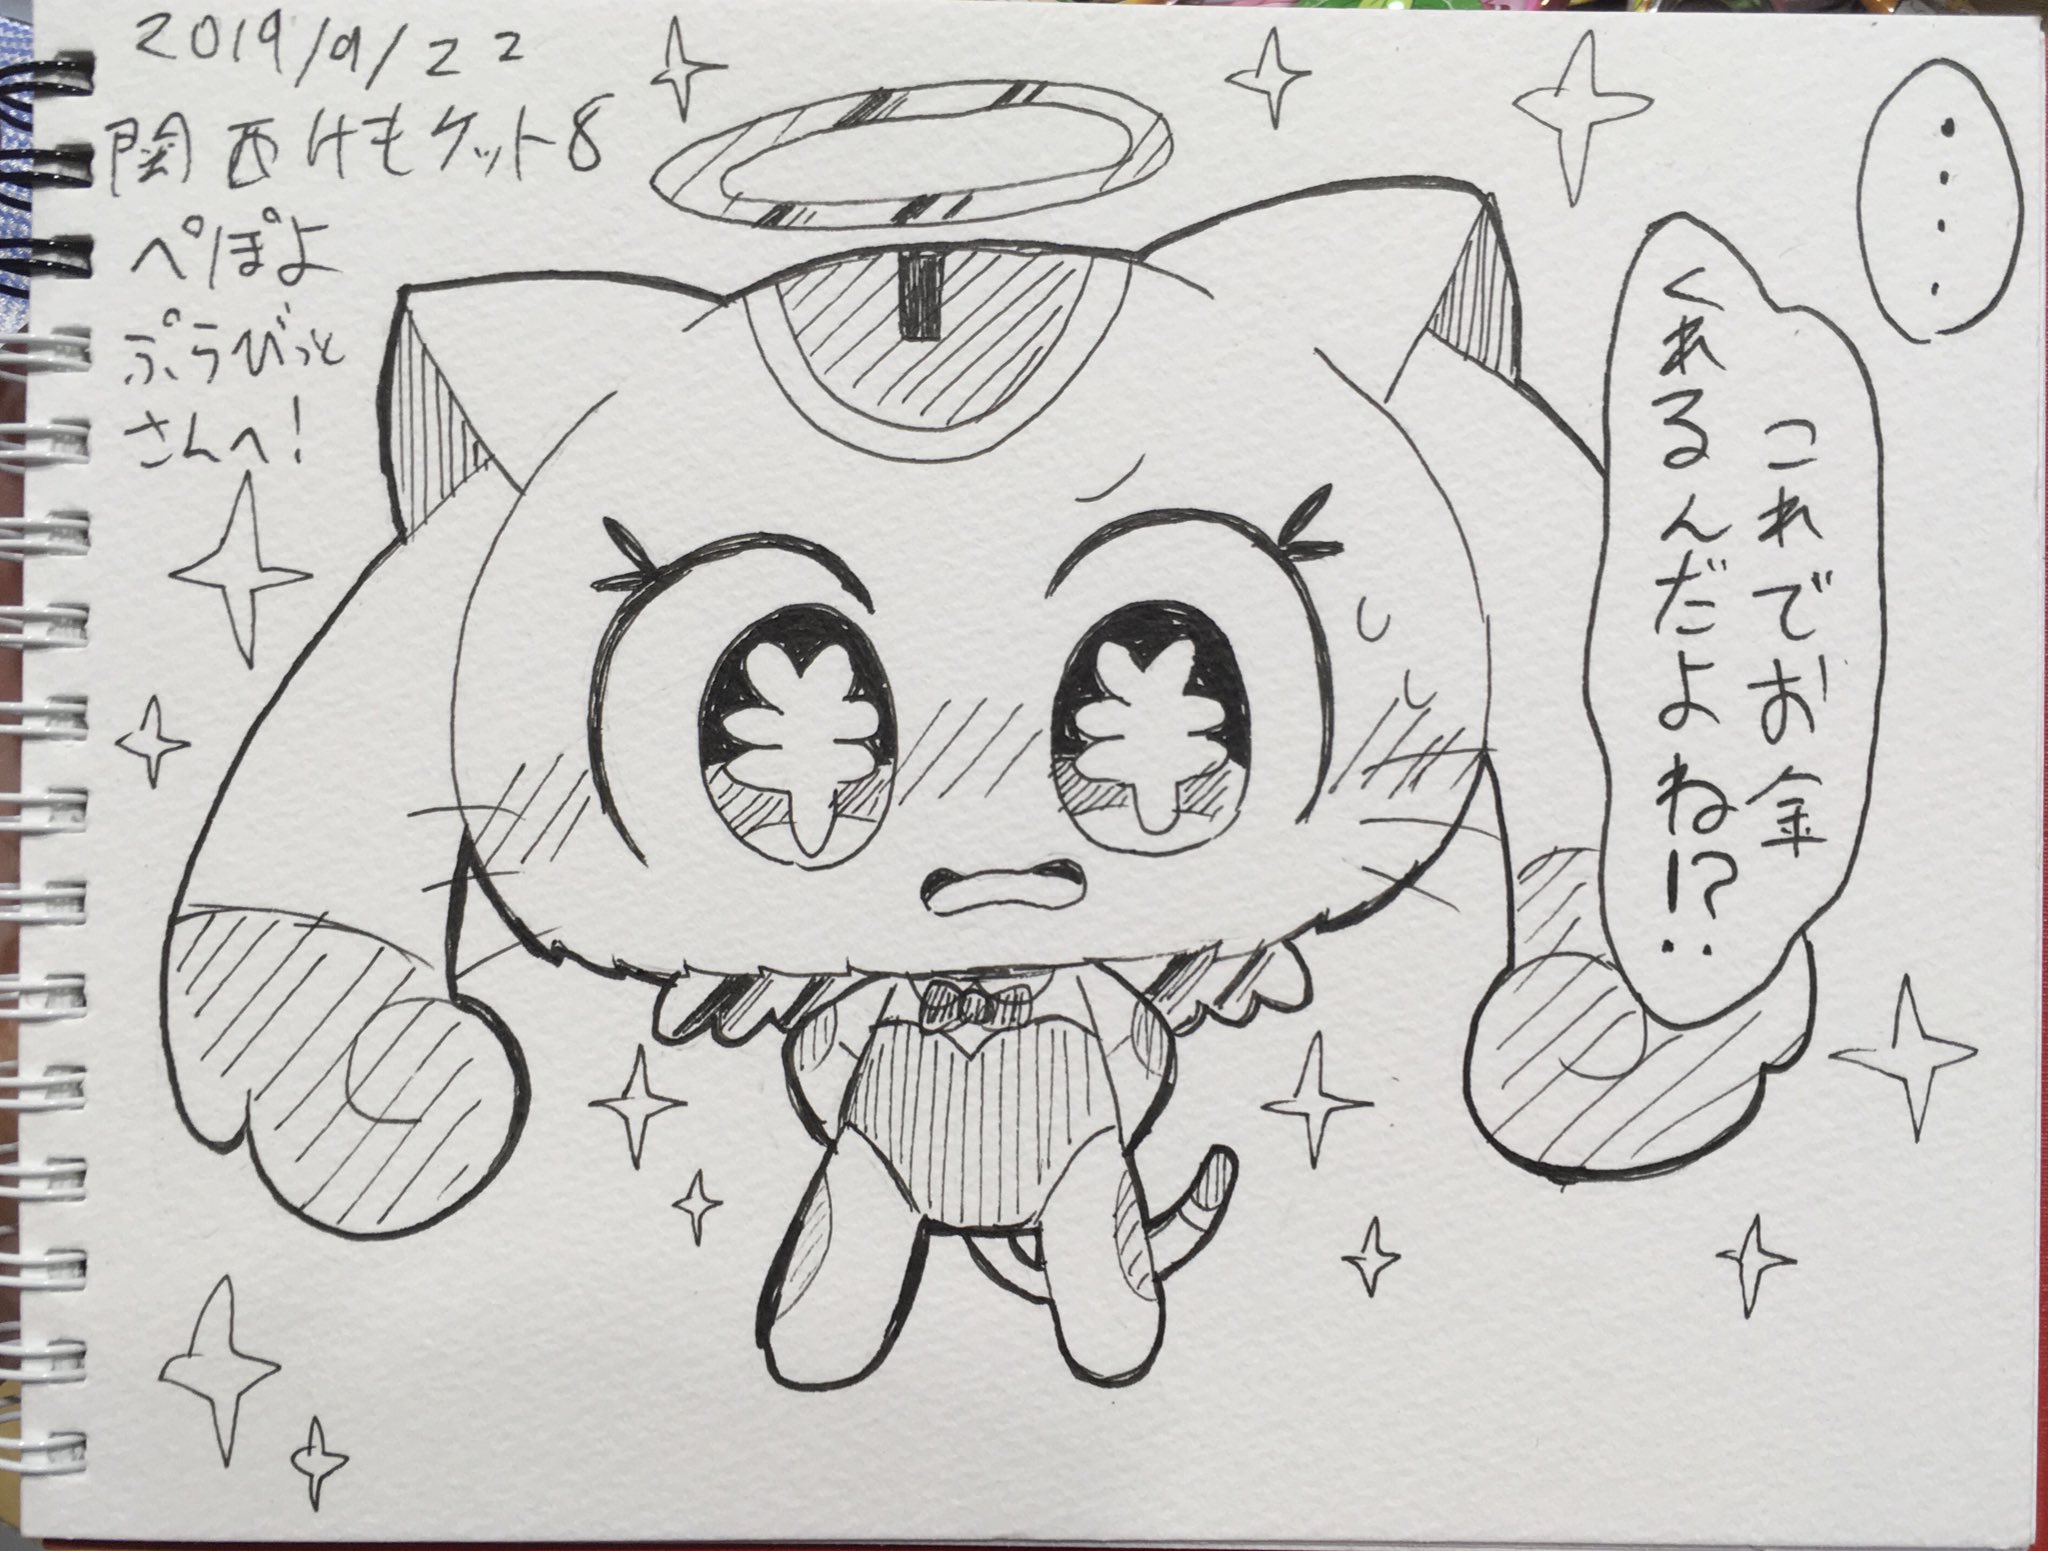 2019/9/22
関西けもケット8
ぺぽよ
ぷらびっと
さんへ!
‥‥
これでお金
くれるんだよね!?‥